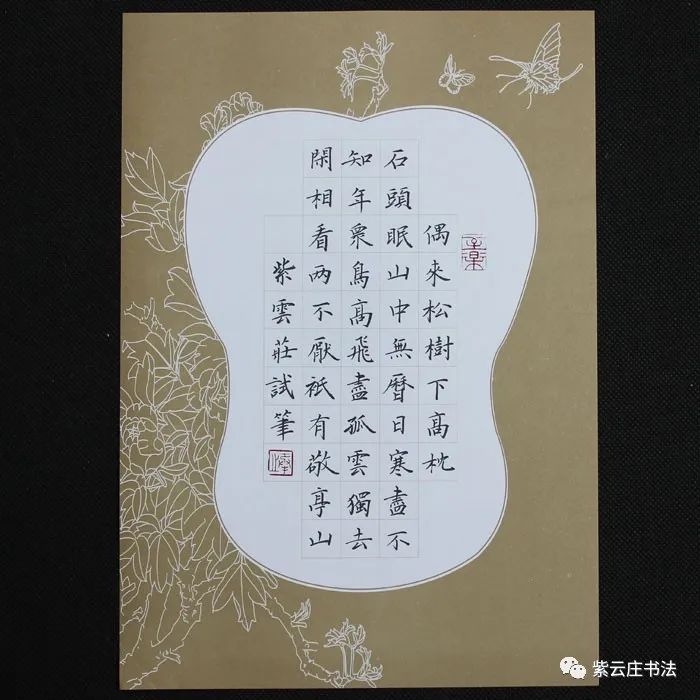 偶來松樹下高枕
石頭眠山中無曆日寒盡不
知年衆鳥高飛盡孤雲獨去
閑相看两不厭祇有敬亭山
紫雲莊試筆
紫云庄书法